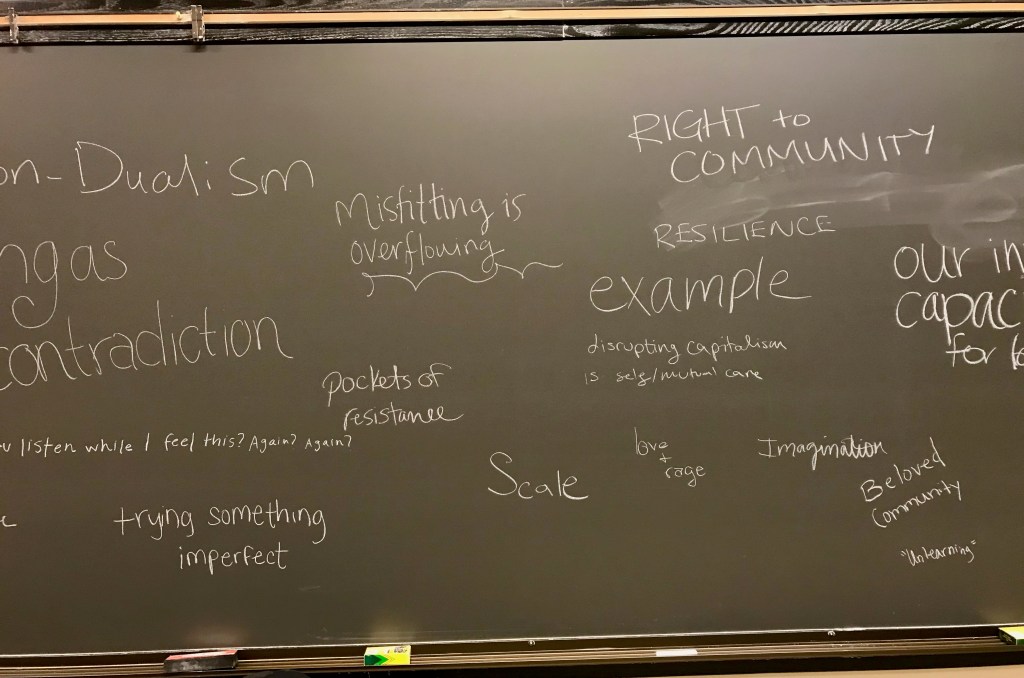 on-Dualism
ngas
contradiction
Misfitting is
overflowing
RIGHT to
COMMUNITY
RESILIENCE
example
disrupting capitalism
is self/mutual care
our in
capac
for
pockets of
resistance
listen while I feel this? Again? Again?
trying something
imperfect
Scale
love
+
rage
Imagination
Beloved
Community
"Unlearning"